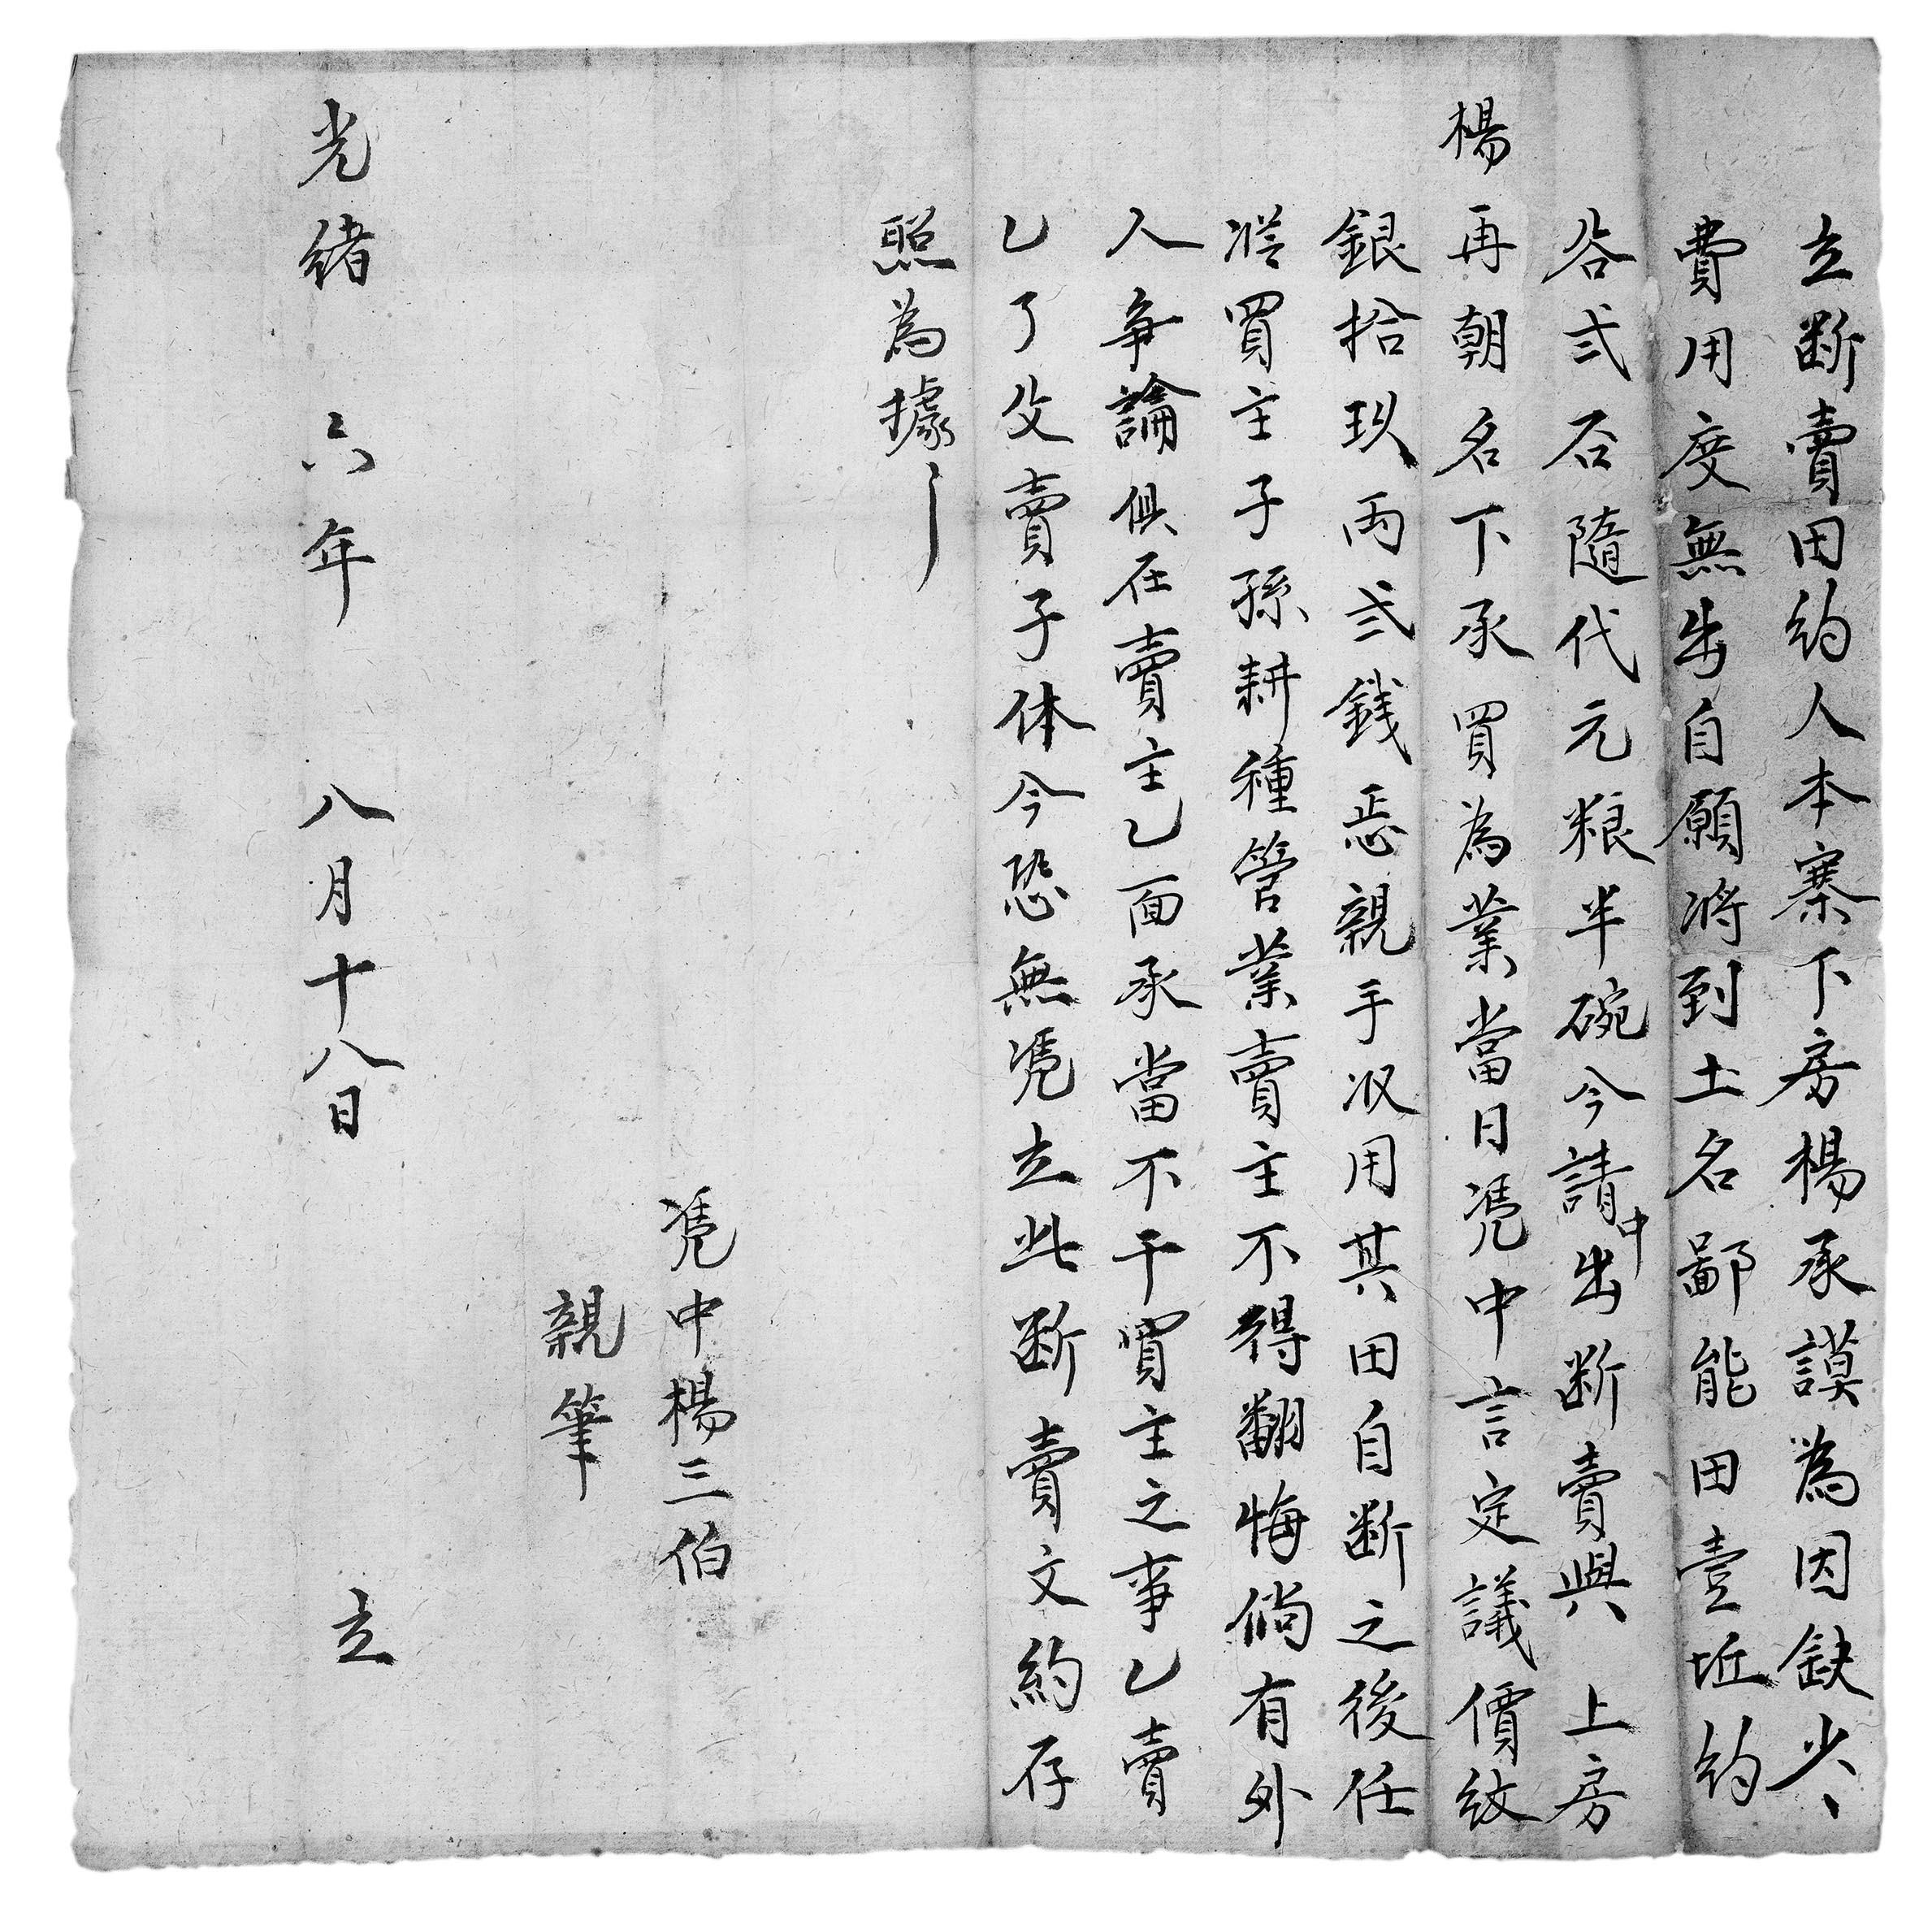 立断賣田約人本寨下房楊承謨為因缺少
費用度無出自願將到土名鄙能田壹坵約
谷弍石隨代元粮半碗今請中出断賣與 上房
楊再朝名下承買為業當日凴中言定議價紋
銀拾玖両弍銭㤙親手収用其田自断之後任
凴買主子孫耕種管業賣主不得翻悔倘有外
人争論俱在賣主乙面承當不干買主之事乙賣
乙了父賣子休今恐無凴立此断賣文約存
照為據
凴中楊三伯
親筆
光緒六年八月十八日 立